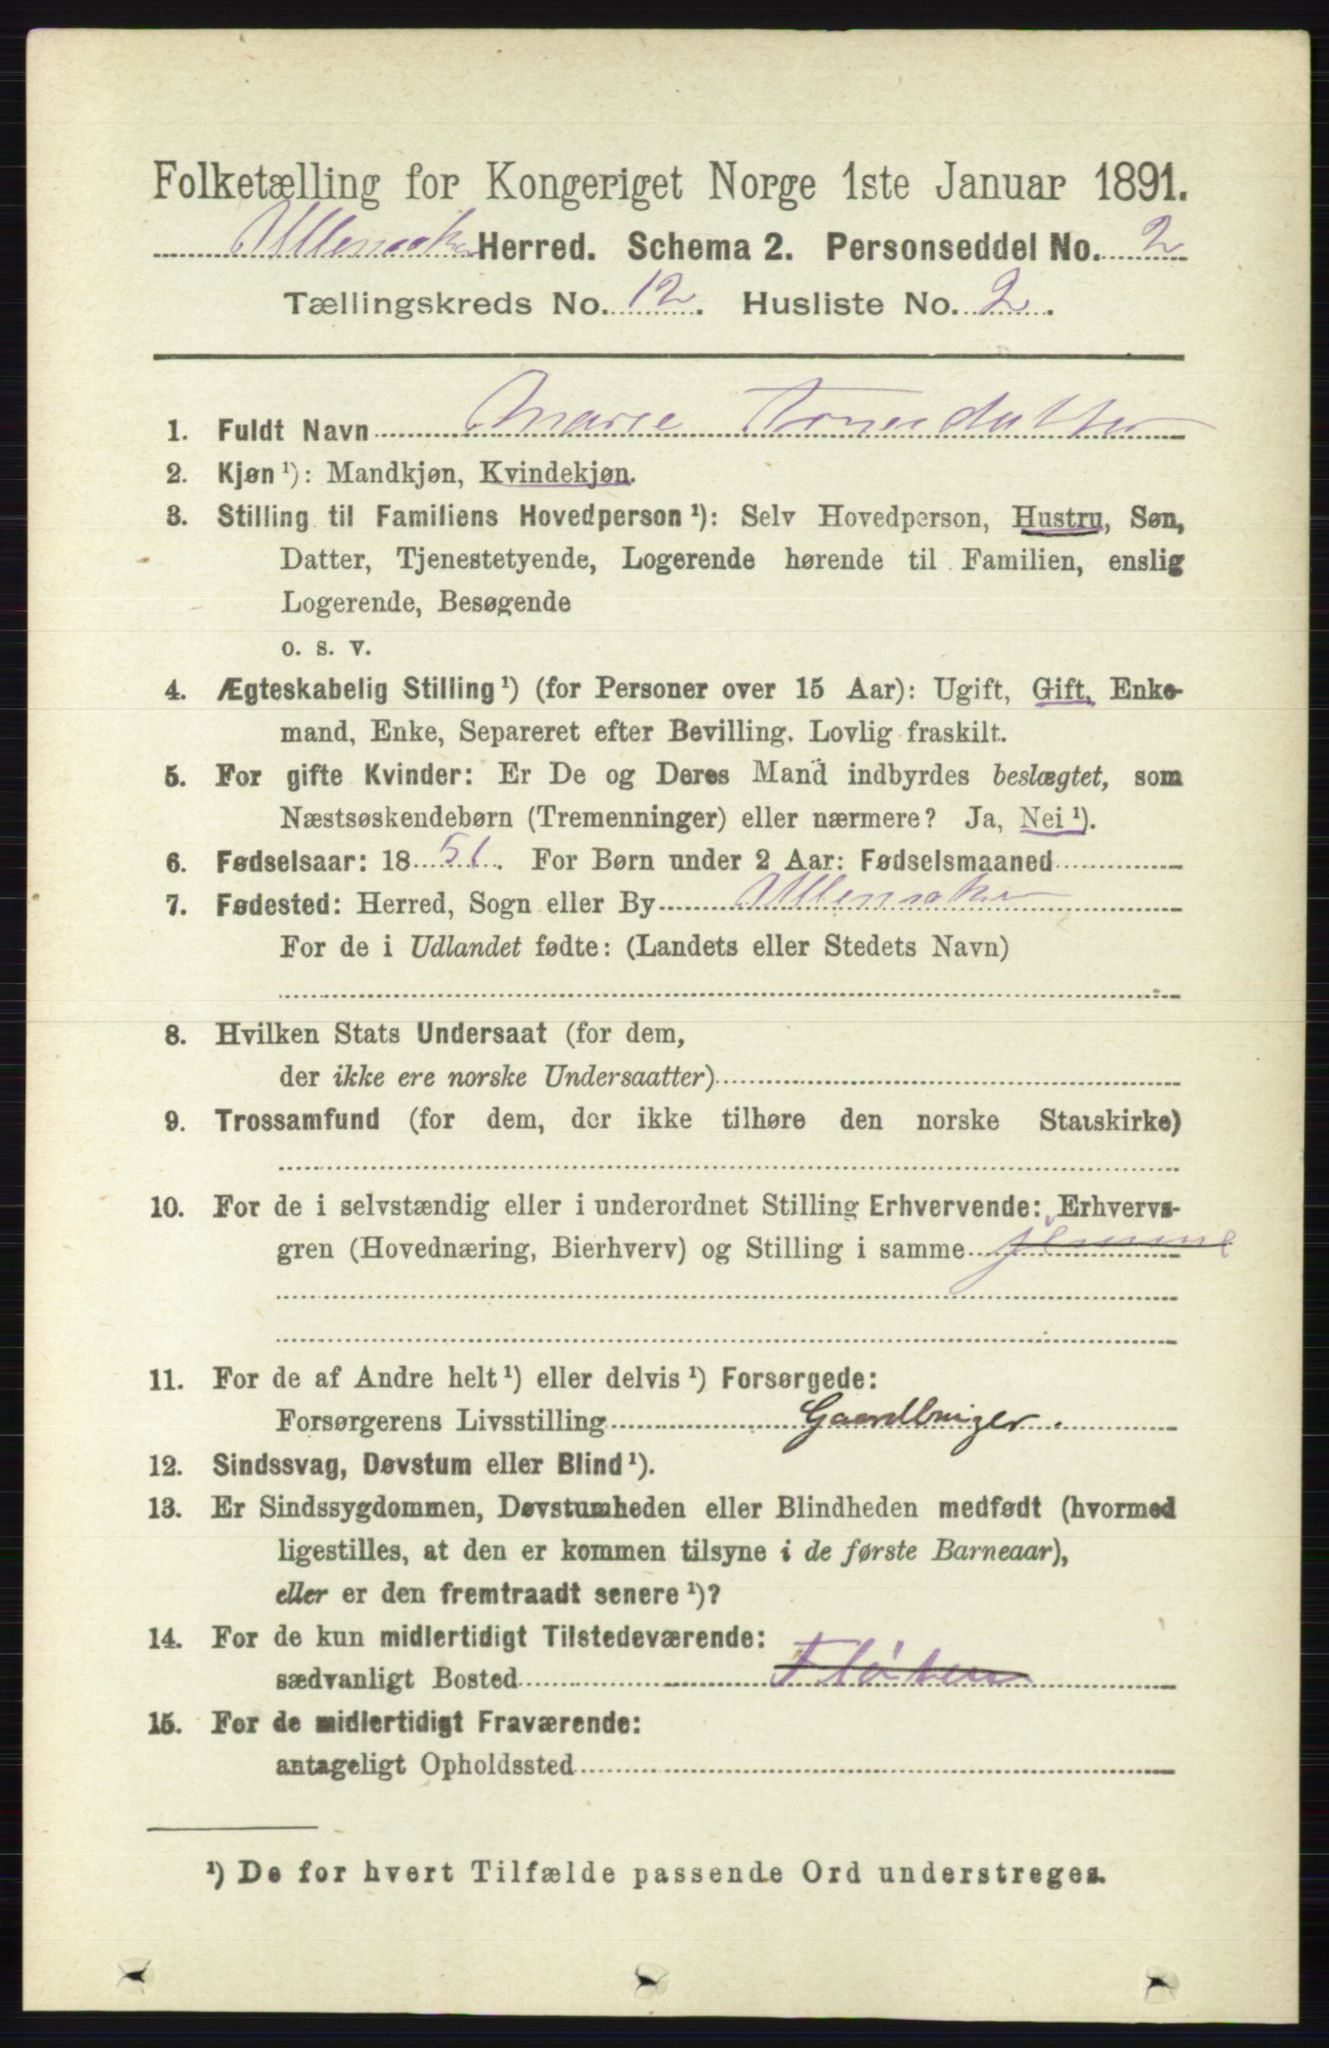 Folketælling for Kongeriget Norge 1ste Januar 1891.
Ullensaker Herred. Schema 2. Personseddel No. 2
Tællingskreds No. 12. Husliste No. 2.
1. Fuldt Navn Marie Arnesdatter
2. Kjøn ¹): Mandkjøn, Kvindekjøn.
3. Stilling til Familiens Hovedperson ¹): Selv Hovedperson, Hustru, Søn,
Datter, Tjenestetyende, Logerende hørende til Familien, enslig
Logerende, Besøgende
o. s. v.
4. Ægteskabelig Stilling ¹) (for Personer over 15 Aar): Ugift, Gift, Enke-
mand, Enke, Separeret efter Bevilling. Lovlig fraskilt.
5. For gifte Kvinder: Er De og Deres Mand indbyrdes beslægtet, som
Næstsøskendebørn (Tremenninger) eller nærmere? Ja, Nei ¹).
6. Fødselsaar: 18 51. For Børn under 2 Aar: Fødselsmaaned
7. Fødested: Herred, Sogn eller By Ullensaker
For de i Udlandet fødte: (Landets eller Stedets Navn)
8. Hvilken Stats Undersaat (for dem,
der ikke ere norske Undersaatter)
9. Trossamfund (for dem, der ikke tilhøre den norske Statskirke)
10. For de i selvstændig eller i underordnet Stilling Erhvervende: Erhvervs-
gren (Hovednæring, Bierhverv) og Stilling i samme
11. For de af Andre helt ¹) eller delvis ¹) Forsørgede:
Forsørgerens Livsstilling Gaardbruger.
12. Sindssvag, Døvstum eller Blind ¹).
13. Er Sindssygdommen, Døvstumheden eller Blindheden medfødt (hvormed
ligestilles, at den er kommen tilsyne i de første Barneaar),
eller er den fremtraadt senere ¹)?
14. For de kun midlertidigt Tilstedeværende:
sædvanligt Bosted Fløten
15. For de midlertidigt Fraværende:
antageligt Opholdssted
¹) De for hvert Tilfælde passende Ord understreges.